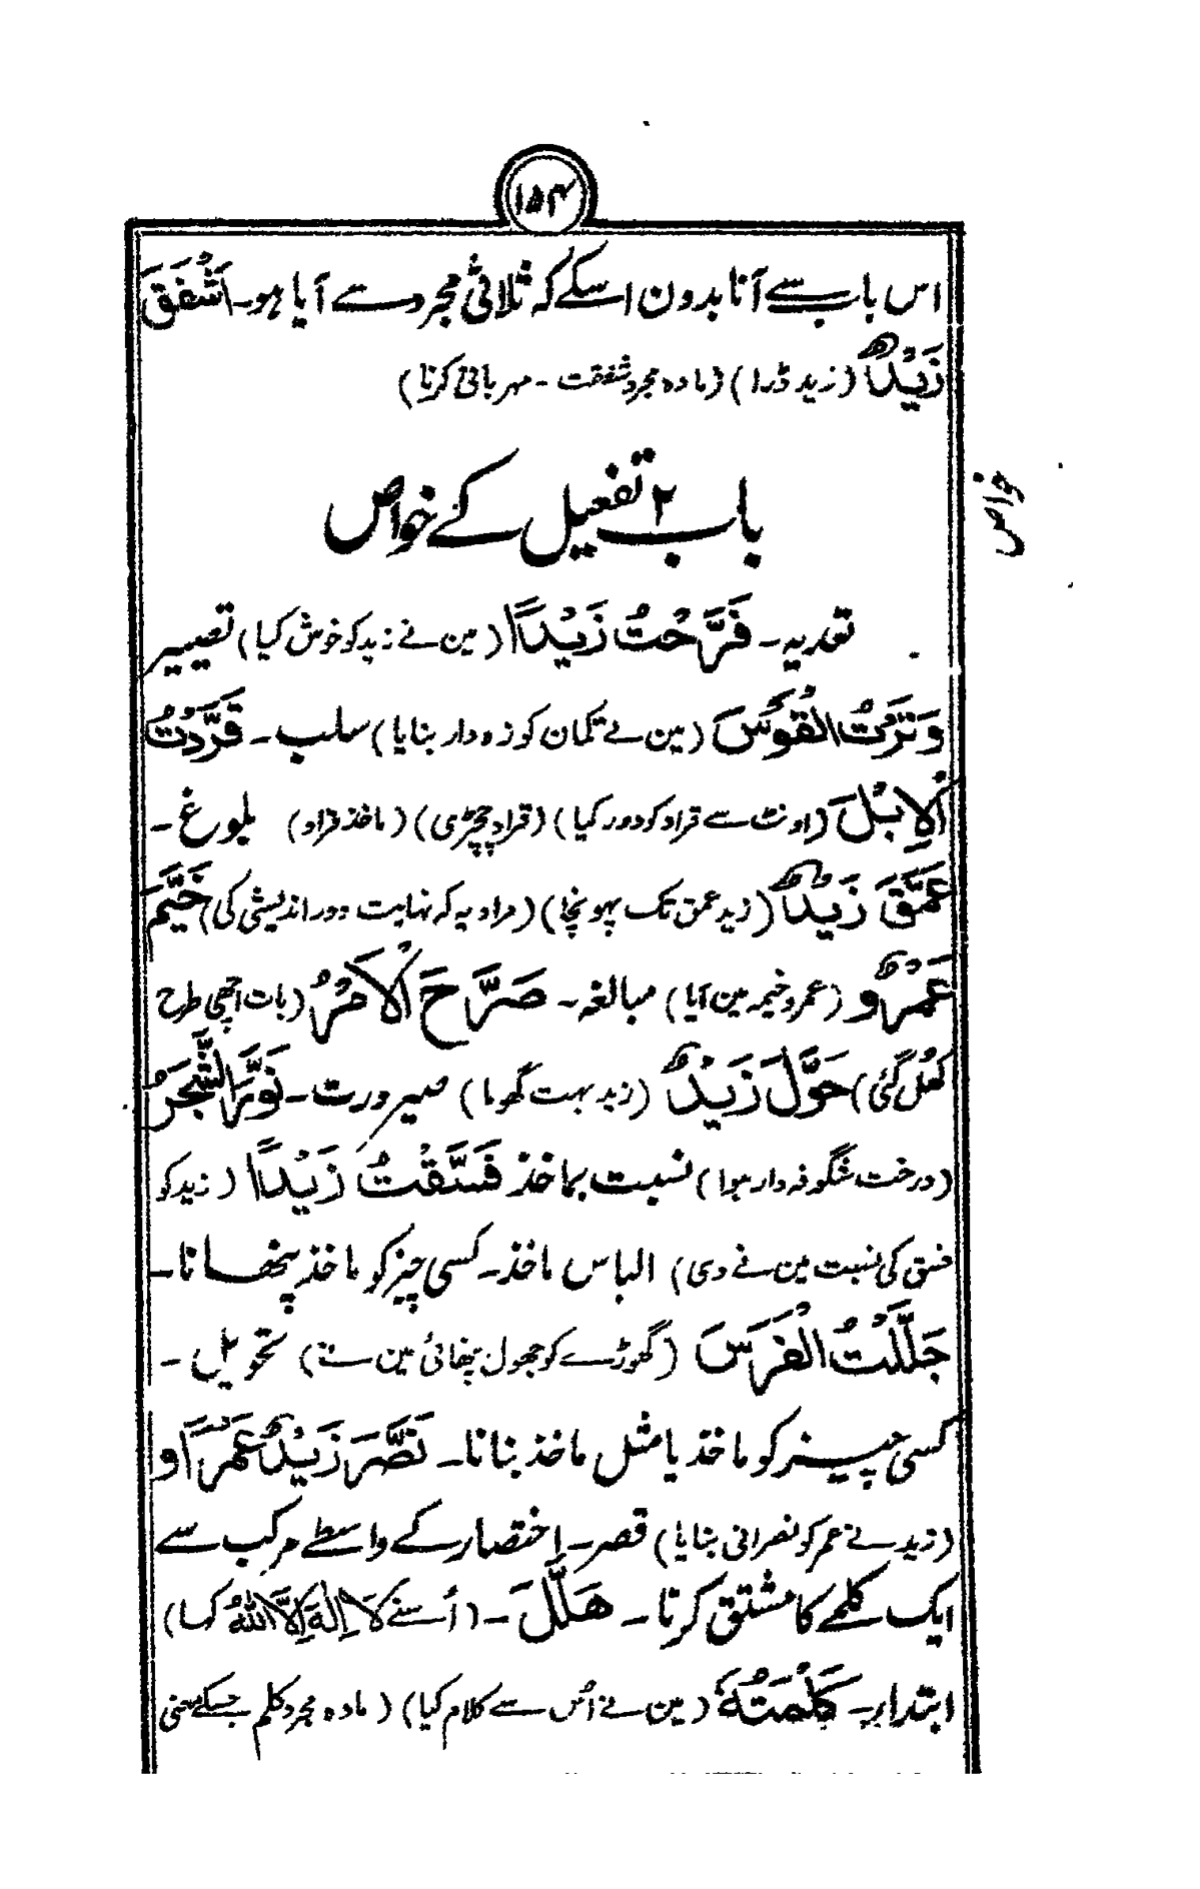 ۱۵۴
اس باب سے آنا بدون اسکے کہ ثلاثی مجرد سے آیا ہو۔ اَشْفَقَ
زَیْدٌ (زید ڈرا) (مادہ مجرد شفقت ۔ مہربانی کرنا)
باب ۲ تفعیل کے خواص
خواص
تعدیہ ۔ فَرَّحْتُ زَیْدًا (مین نے زید کو خوش کیا) تصییر
وَتَّرْتُ الْقَوْسَ (مین نے کمان کو زہ دار بنایا) سلب ۔ قَرَّدْتُ
الْاِبْلَ (اونٹ سے قراد کو دور کیا) (قراد چچڑی) (ماخذ قراد) بلوغ ۔
عَمَّقَ زَیْدٌ (زید عمق تک پہونچا) (مراد یہ کہ نہایت دور اندیشی کی) خَیَّمَ
عَمْرٌو (عمرو خیمہ مین آیا) مبالغہ ۔ صَرَّحَ الْاَمْرُ (بات اچھی طرح
کھل گئی) حَوَّلَ زَیْدٌ (زید بہت گھوما) صیرورت ۔ نَوَّرَ الشَّجَرُ
(درخت شگوفہ دار ہوا) نسبت بماخذ فَسَّقْتُ زَیْدًا (زید کو
فسق کی نسبت مین نے دی) الباس ماخذ ۔ کسی چیز کو ماخذ پنھانا ۔
جَلَّلْتُ الْفَرَسَ (گھوڑے کو جھول پنھائی مین نے) تحویل ۔
کسی چیز کو ماخذ یا مثل ماخذ بنانا ۔ نَصَّرَ زَیْدٌ عَمْرًاو
(زید نے عمر کو نصرانی بنایا) قصر ۔ اختصار کے واسطے مرکب سے
ایک کلمے کا مشتق کرنا ۔ ھَلَّلَ ۔ (اُسنے لَا اِلٰہَ اِلَّا اللّٰہُ کہا)
ابتدا ۔ کَلَّمْتُہٗ (مین نے اُس سے کلام کیا) (مادہ مجرد کلم جسکے معنی